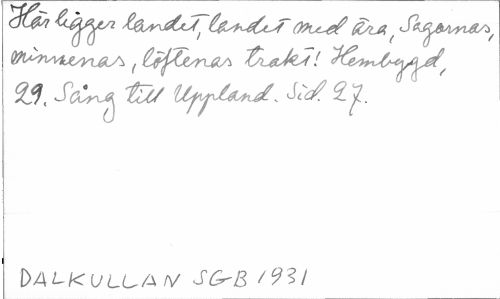 Här ligger landet, landet med ära, Sagornas,
minnenas, löftenas trakt! Hembygd,
29. Sång till Uppland. Sid. 27.
DALKULLAN SGB 1931